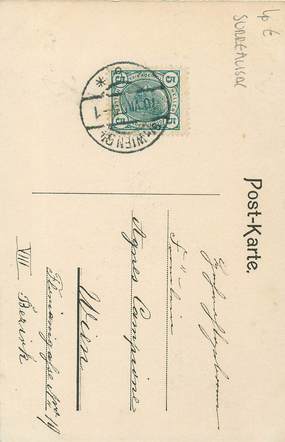 Lp €
SURREALISME
Post-Karte.
Hochwohlgeboren
Fräulein
Agnes Campione
Wien
VIII Bezirk
5 5
WIEN